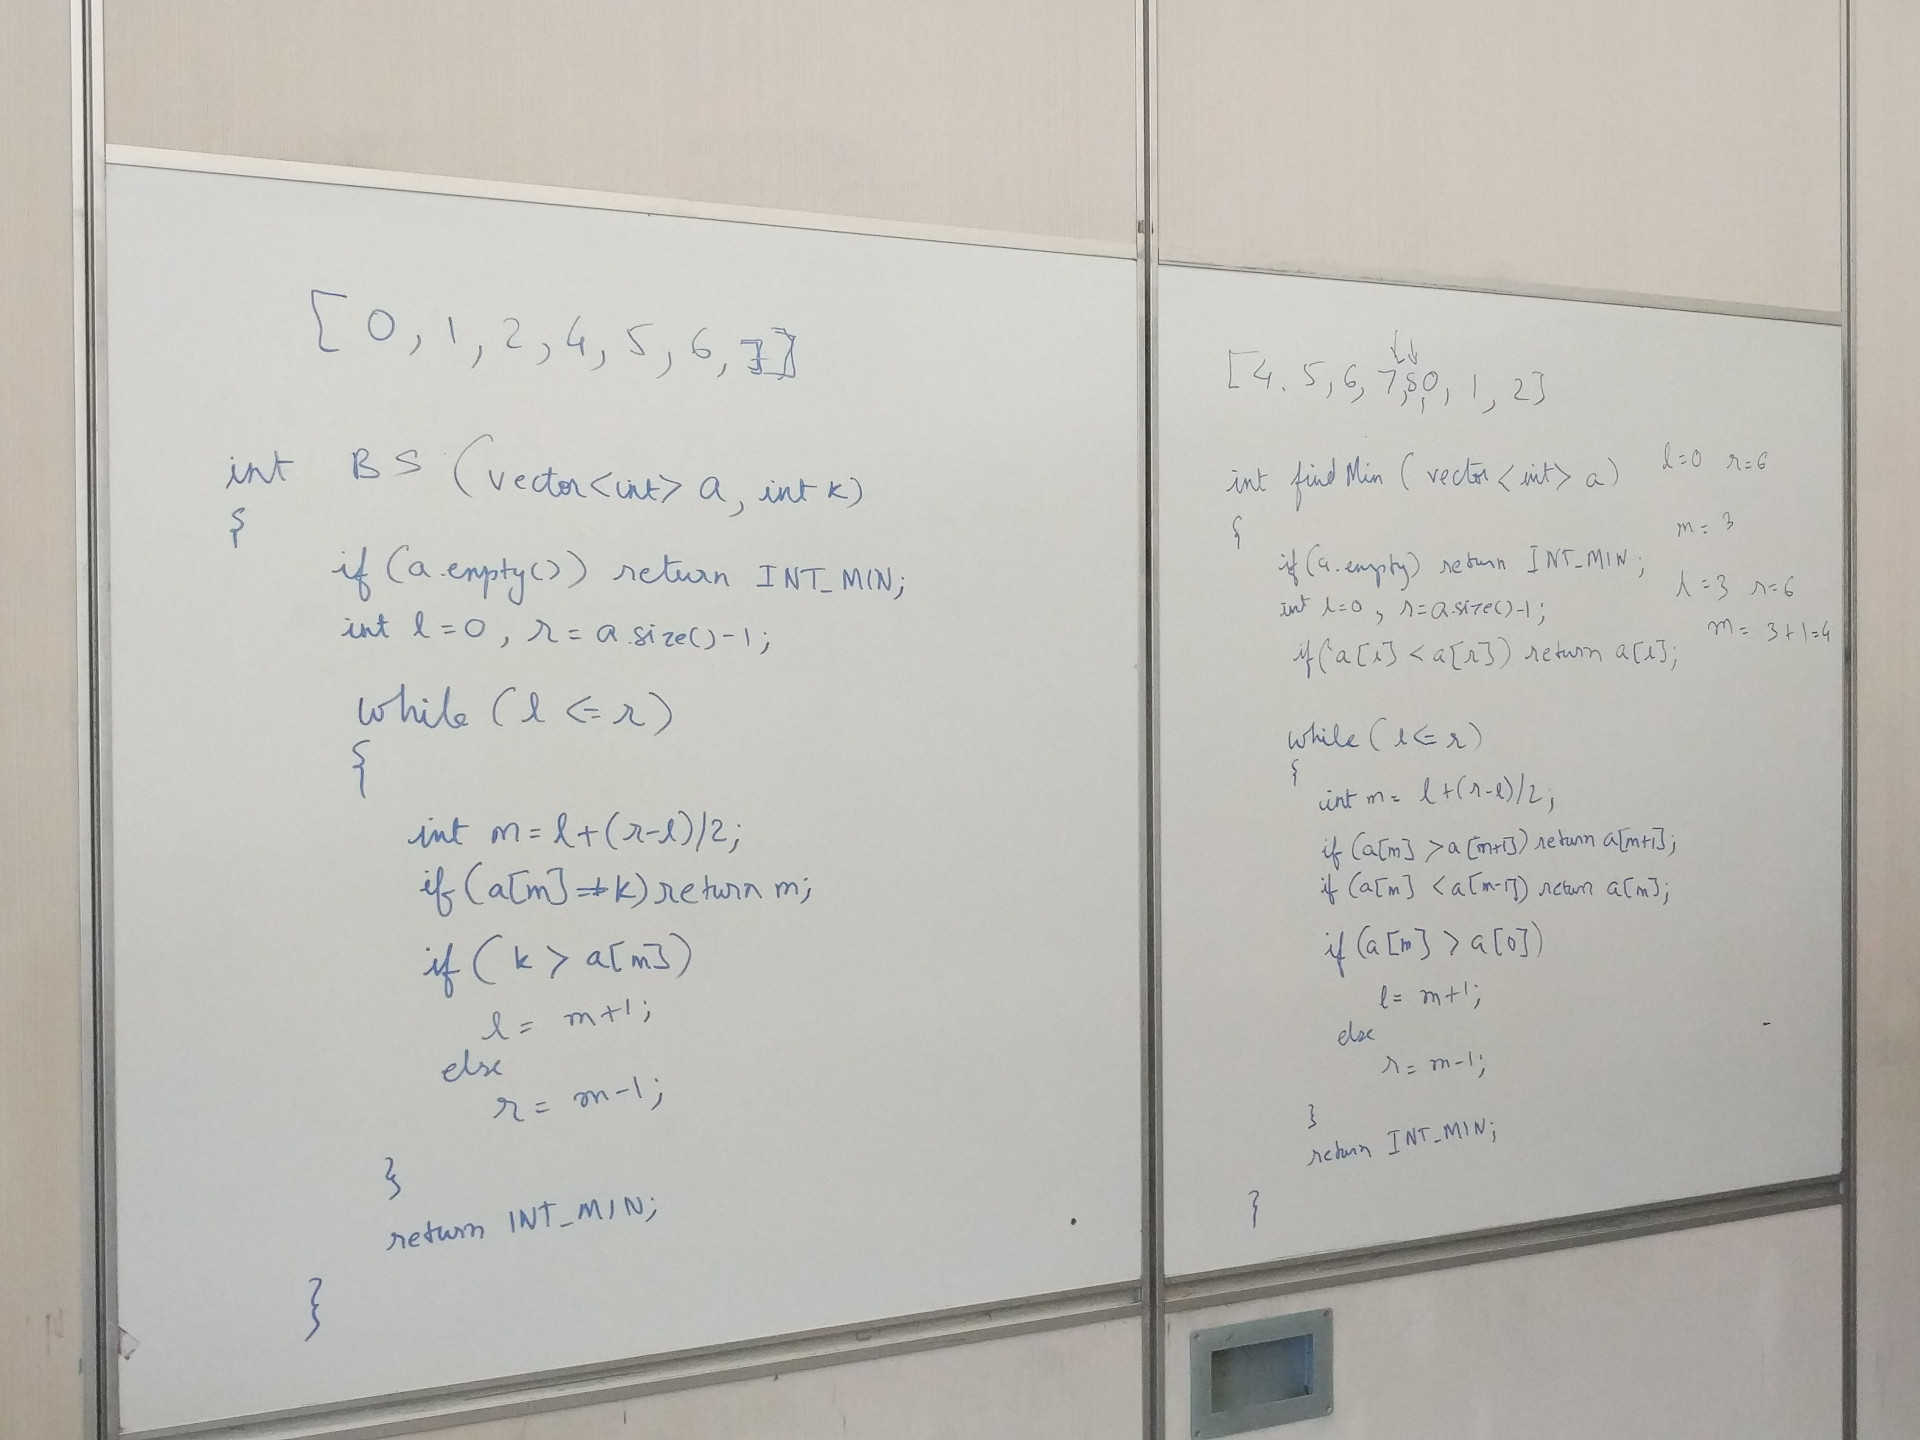 [0, 1, 2, 4, 5, 6, 7]
int BS (vector<int> a, int k)
{
if (a.empty()) return INT_MIN;
int l=0, r=a.size()-1;
while (l <= r)
{
int m=l+(r-l)/2;
if (a[m]==k) return m;
if (k > a[m])
l = m+1;
else
r = m-1;
}
return INT_MIN;
}
[4. 5, 6, 7, 8, 0, 1, 2]
int findMin (vector<int> a)
{
if (a.empty) return INT_MIN;
int l=0, r=a.size()-1;
if (a[l] < a[r]) return a[l];
while (l <= r)
{
int m= l+(r-l)/2;
if (a[m] > a[m+1]) return a[m+1];
if (a[m] < a[m-1]) return a[m];
if (a[m] > a[0])
l= m+1;
else
r= m-1;
}
return INT_MIN;
}
l=0 r=6
m=3
l=3 r=6
m= 3+1=4